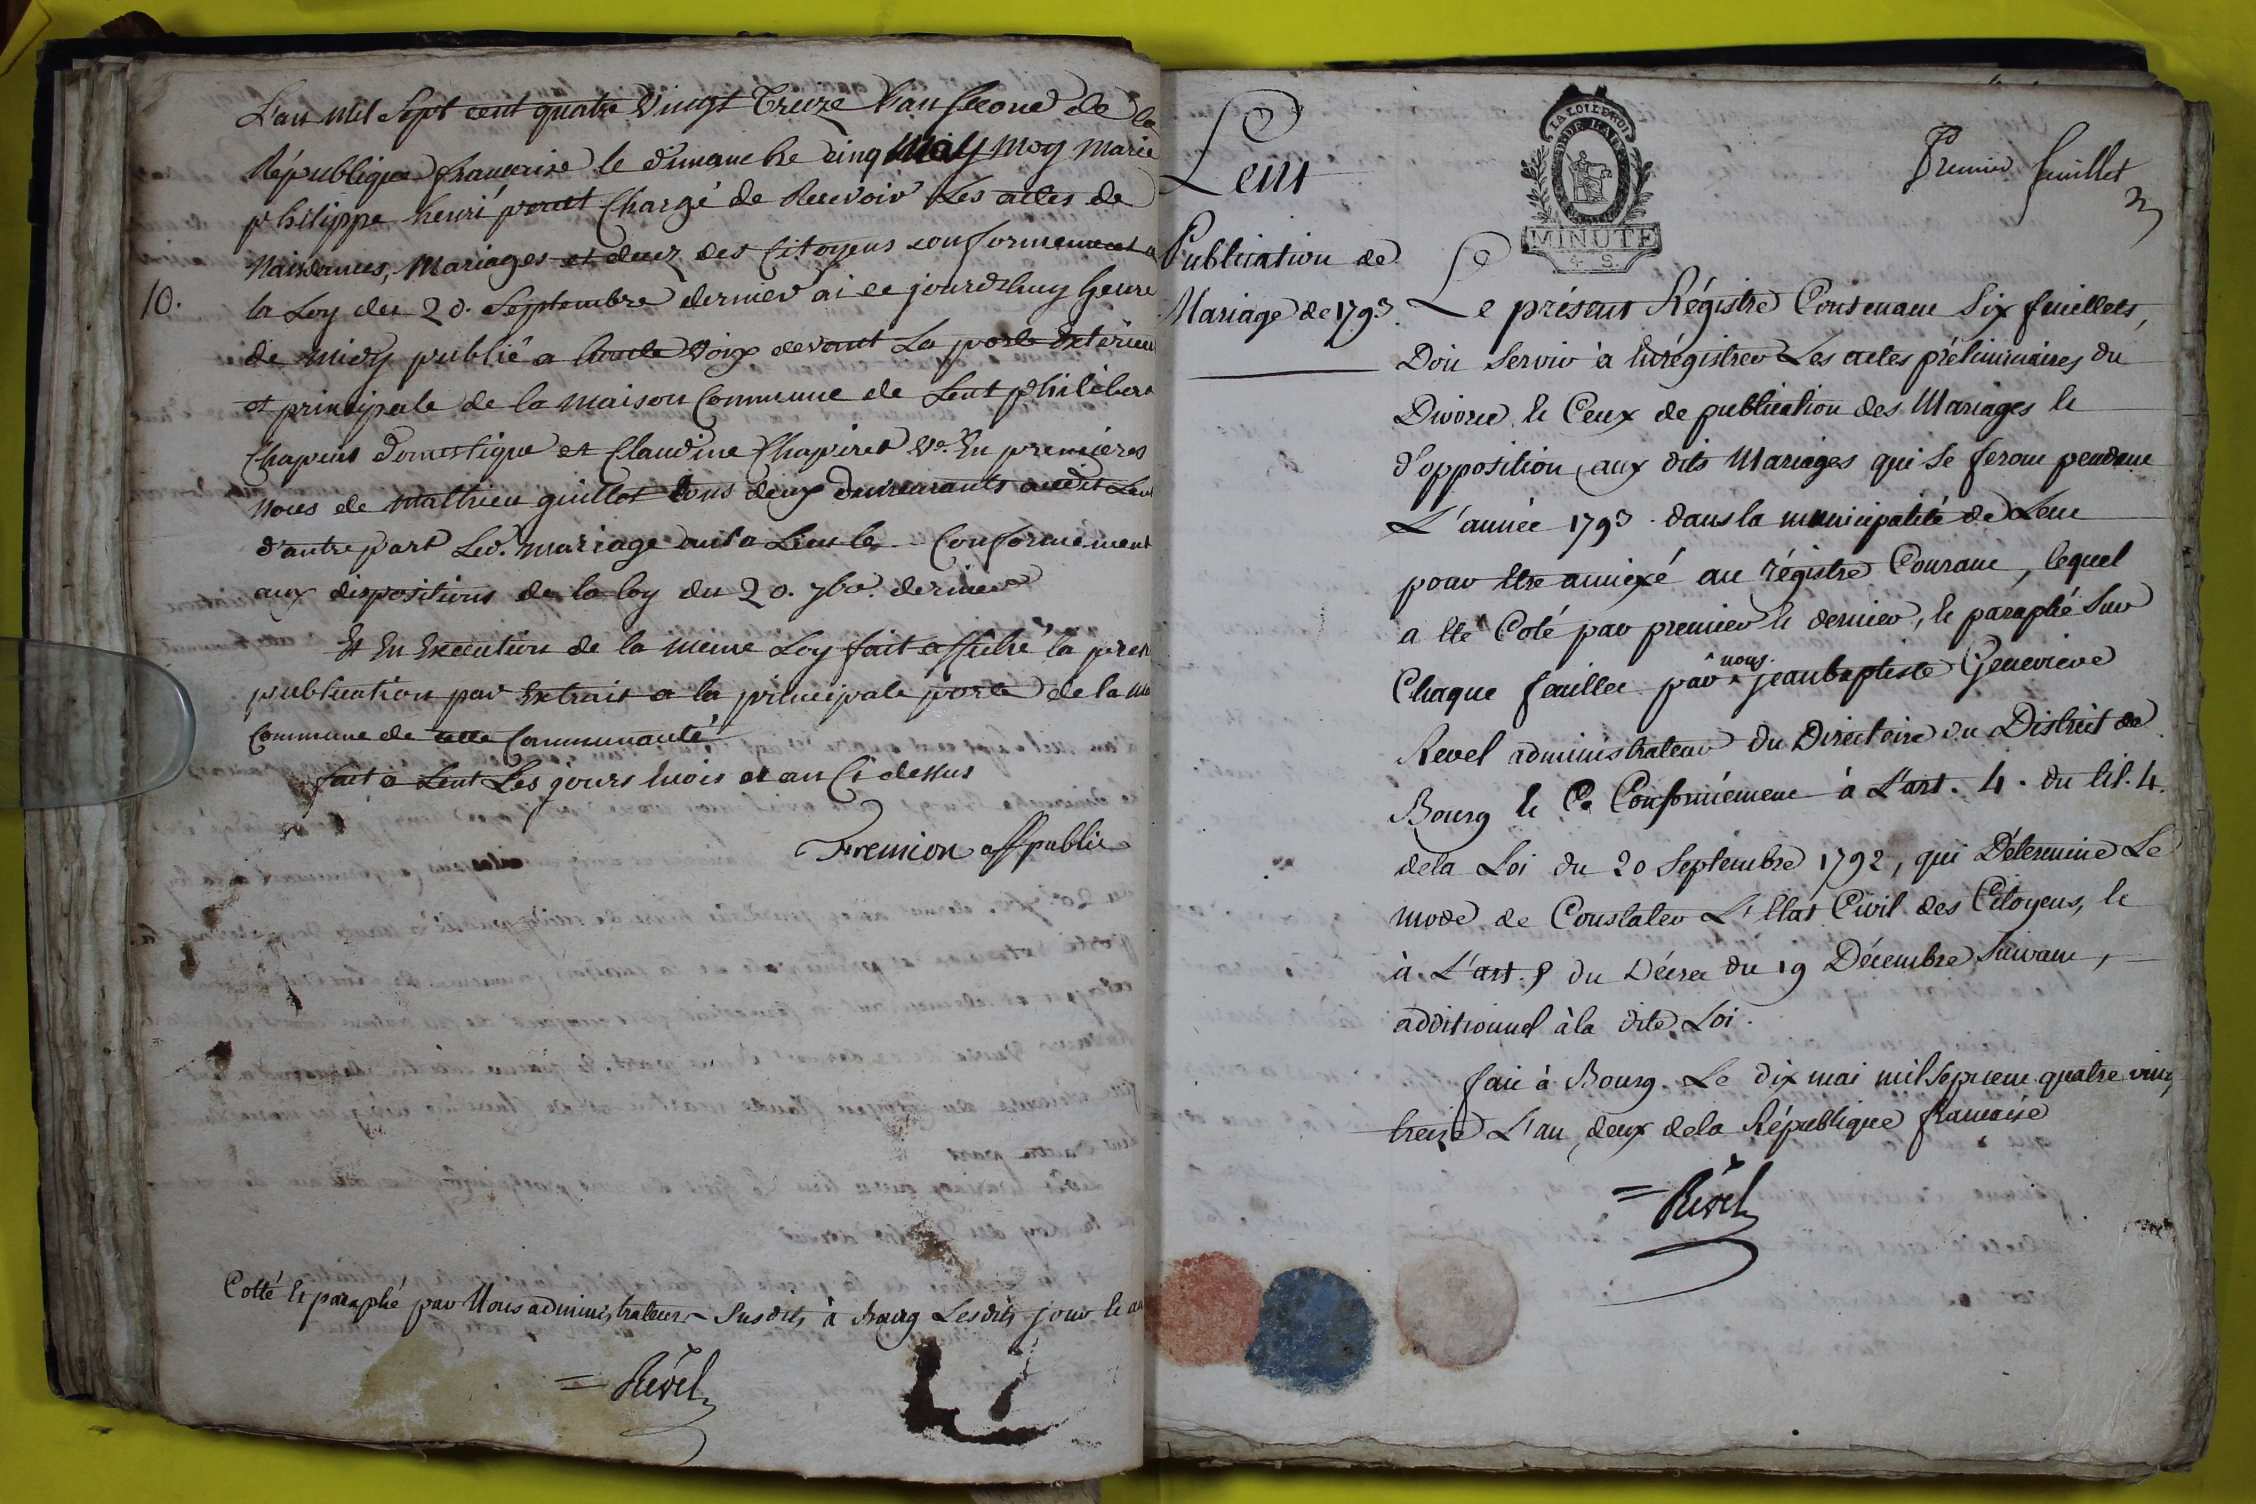 L'an mil Sept cent quatre Vingt Treize L'an second de la
République française le dimanche cinq may moy marie
philippe henri chargé de Recevoir Les actes de
10.
Naissances, Mariages et decez des Citoyens conformement a
la Loy du 20. Septembre dernier ai ce jourdhuy heure
de midy publié a haute voix devant La porte Extérieure
et principale de la maison Commune de Lent philibert
Chapuis domestique et Claudine Chapiret Ve. En premières
Noces de mathieu guillot tous deux demeurants audit Lent
d'autre part Led. mariage aura Lieu Conformement
aux dispositions de la loy du 20. 7bre. dernier
Et En Execution de la meme Loy fait affiché la pres
publication par Extrait a la principale porte de la M
Commune de cette Communauté
fait a Lent Les jours mois et an Ci dessus
Fremion off public
Cotté Et paraphé par Nous administrateur Susdit, à Bourg Lesdits jour et an
= Revel
Lent
Publication de
Mariage de 1793.
LA LOI LE ROI
MINUTE
4. S.
Premier feuillet
Le présent Régistre Contenant Six feuillets,
Doit Servir à Enrégistrer Les actes préliminaires du
Divorce, et Ceux de publication des Mariages et
d'opposition aux dits Mariages qui Se feront pendant
L'année 1793. dans la municipalité de Lent
pour Etre annexé au régistre Courant, lequel
a Eté Coté par premier et dernier, et paraphé Sur
Chaque feuillet par ^nous. jeanbaptiste Genevieve
Revel administrateur du Directoire du District de
Bourg et Ce Conformément à L'art. 4. du tit. 4.
dela Loi du 20 Septembre 1792, qui Détermine Le
mode de Constater L'Etat Civil des Citoyens, et
à L'art. 9 du Décret du 19 Décembre Suivant,
additionnel à la dite Loi.
fait à Bourg. Le dix mai mil Sept cent quatre vingt
treize L'an deux dela République francaise
= Revel